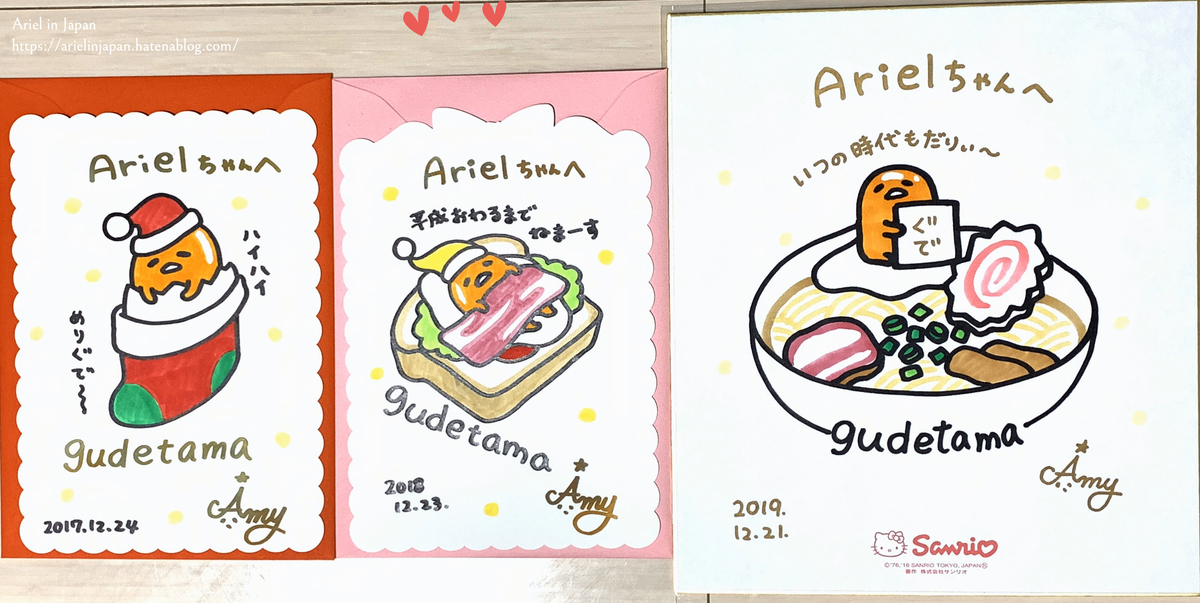 Ariel in Japan
https://arielinjapan.hatenablog.com/
Arielちゃんへ
ハイハイ
めりぐで〜〜
gudetama
Amy
2017.12.24
Arielちゃんへ
平成おわるまで
ねまーす
gudetama
2018
12.23.
Amy
Arielちゃんへ
いつの時代もだりぃ〜
ぐで
gudetama
Amy
2019.
12.21.
Sanrio
©'76,'16 SANRIO TOKYO, JAPAN Ⓢ
著作 株式会社サンリオ